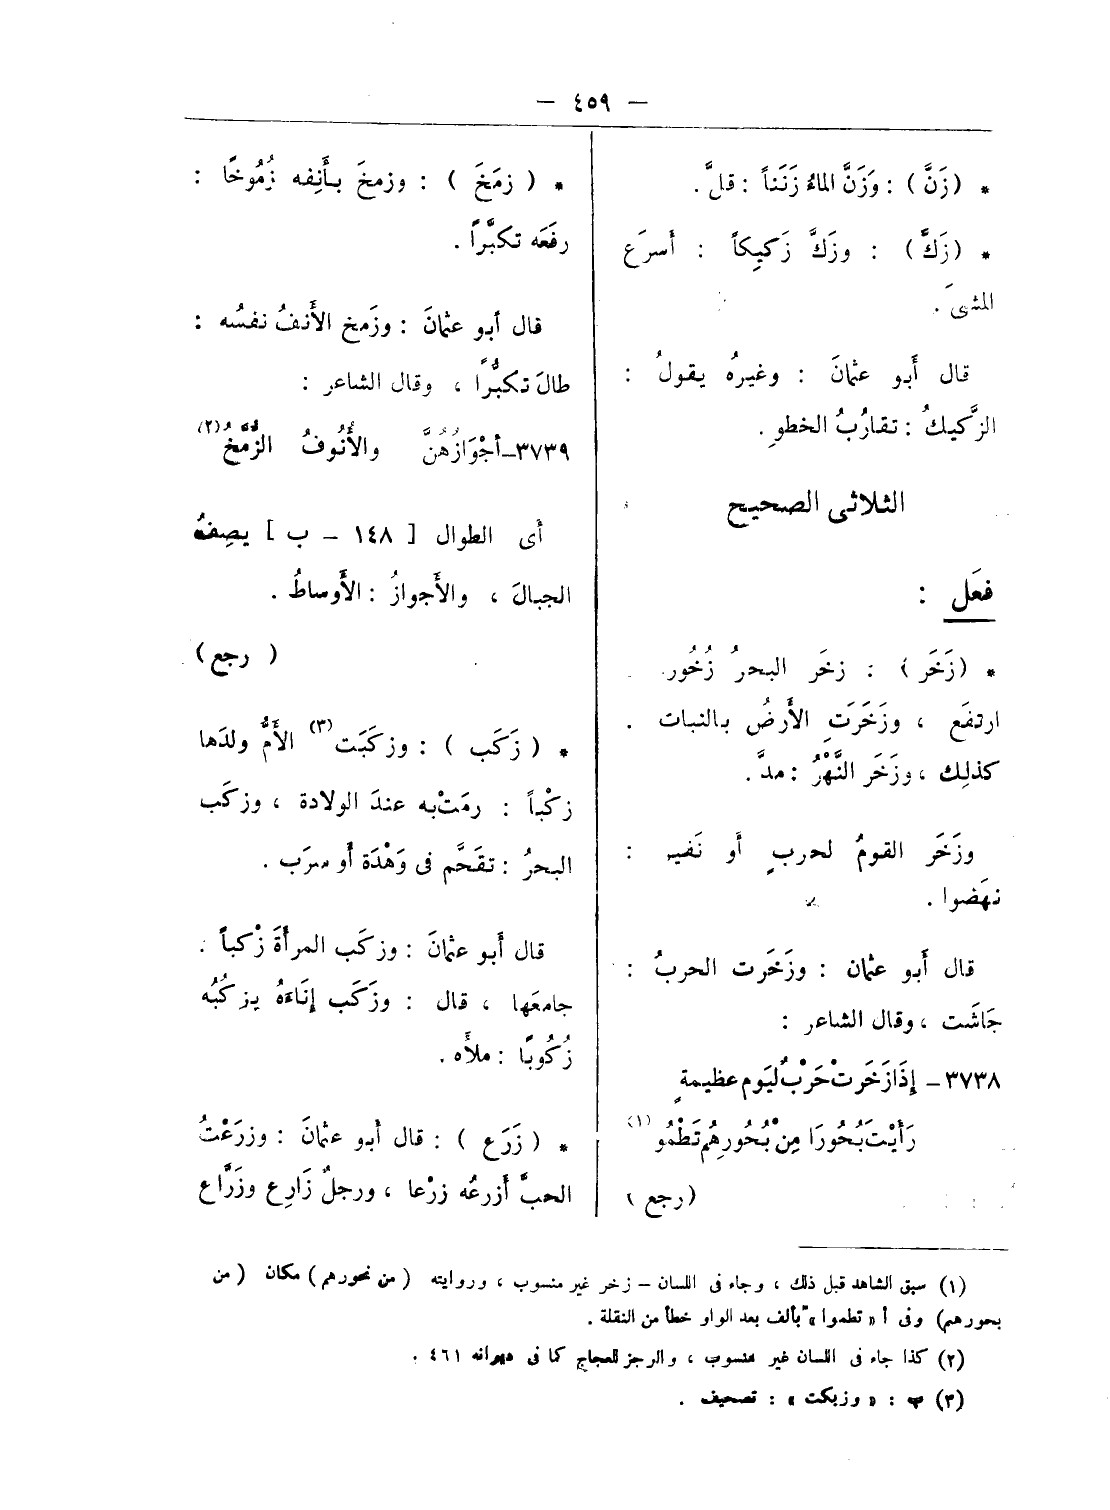 — ٤٥٩ —
* (زَنَّ) : وَزَنَّ الماءُ زَنَناً : قلَّ .
* (زَكَّ) : وزَكَّ زَكيِكاً : أسرَع
المشىَ .
قال أَبو عثمانَ : وغيرهُ يقولُ :
الزَّكيكُ : تقارُبُ الخطوِ .
الثلاثى الصحيح
فعَل :
* (زَخَر) : زخَر البحرُ زُخُور
ارتفَع ، وزَخَرَتِ الأَرضُ بالنبات .
كذلِك ، وزَخَر النَّهْرُ : مدَّ .
وزَخَر القومُ لحربٍ أو نَفير :
نهَضوا .
قال أَبو عثمان : وزَخَرت الحربُ :
جَاشَت ، وقال الشاعر :
٣٧٣٨ – إِذَا زَخَرتْ حَرْبٌ ليَوم عظيمةٍ
رَأَيْتَ بُحُورًا مِنْ بُحُورِهُم تَطْمُو (١)
(رجع)
* ( زمَخَ ) : وزمخَ بأَنِفه زُمُوخًا :
رفَعَه تكبَّراً .
قال أبو عثمانَ : وزَمخ الأَنفُ نفسُه :
طالَ تكبُّرًا ، وقال الشاعر :
٣٧٣٩– أجْوَازُهُنَّ والأَنُوفُ الزُّمَّخُ (٢)
أى الطوال [ ١٤٨ – ب ] يصِفُ
الجبالَ ، والأَجوازُ : الأَوساطُ .
( رجع )
* ( زَكَب ) : وزكَبَت (٣) الأُمُّ ولدَها
زكْباً : رمَتْ به عندَ الولادة ، وزكَب
البحرُ : تقَحَّم فى وَهْدَة أَو سرَب .
قال أَبو عثمانَ : وزكَب المرأةَ زكْباً .
جامعَها ، قال : وزَكَب إِنَاءَهُ يزكُبُه
زُكُوبًا : ملأَه .
* ( زَرَع ) : قال أَبو عثمانَ : وزرَعْتُ
الحبَّ أَزرعُه زرْعا ، ورجلٌ زَارِع وزَرَّاع
(١) سبق الشاهد قبل ذلك ، وجاء فى اللسان – زخر غير منسوب ، وروايته (من نحورهم) مكان (من
بحورهم) وفى أ « تطموا » بألف بعد الواو خطأ من النقلة .
(٢) كذا جاء فى اللسان غير منسوب ، والرجز للعجاج كما فى ديوانه ٤٦١ .
(٣) ب : « وزبكت » : تصحيف .